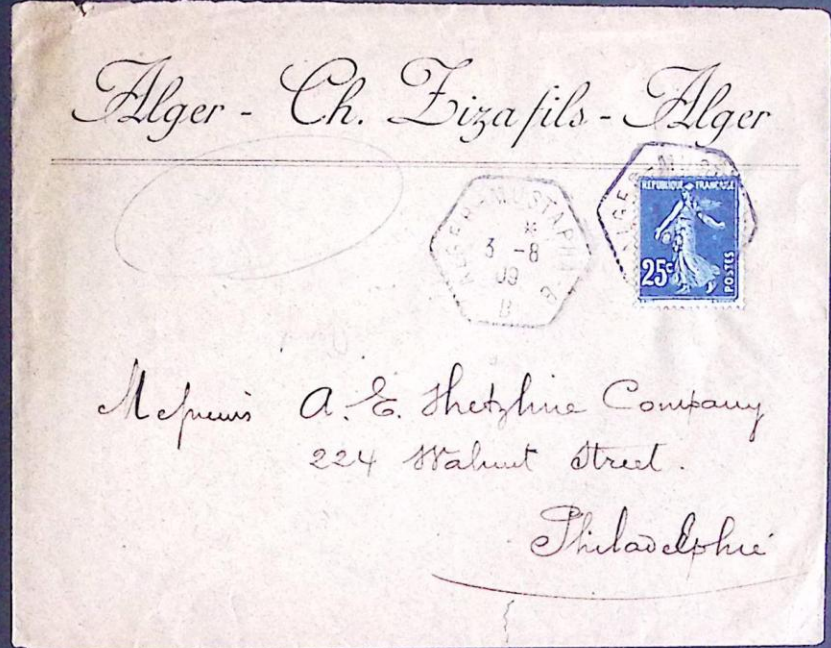 Alger - Ch. Ziza fils - Alger
ALGER-MUSTAPHA B
3 -8
09
B
REPUBLIQUE FRANCAISE
25c
POSTES
Messieurs A. E. Company
224 Walnut Street.
Philadelphie